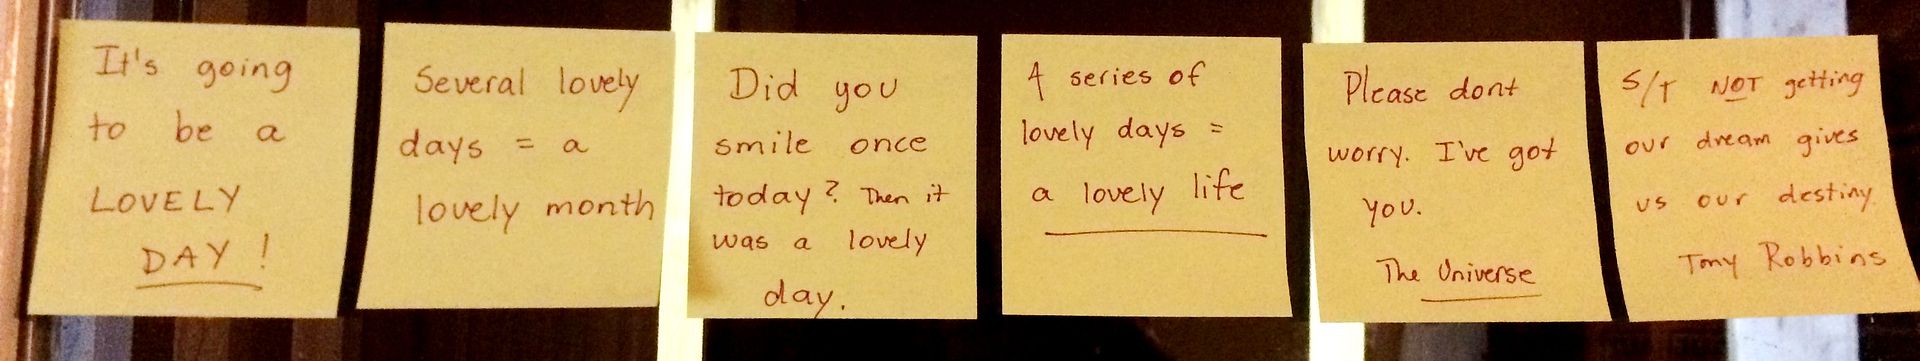 It's going
to be a
LOVELY
DAY!
Several lovely
days = a
lovely month
Did you
smile once
today? Then it
was a lovely
day.
A series of
lovely days =
a lovely life
Please dont
worry. I've got
you.
The Universe
S/T NOT getting
our dream gives
us our destiny.
Tony Robbins